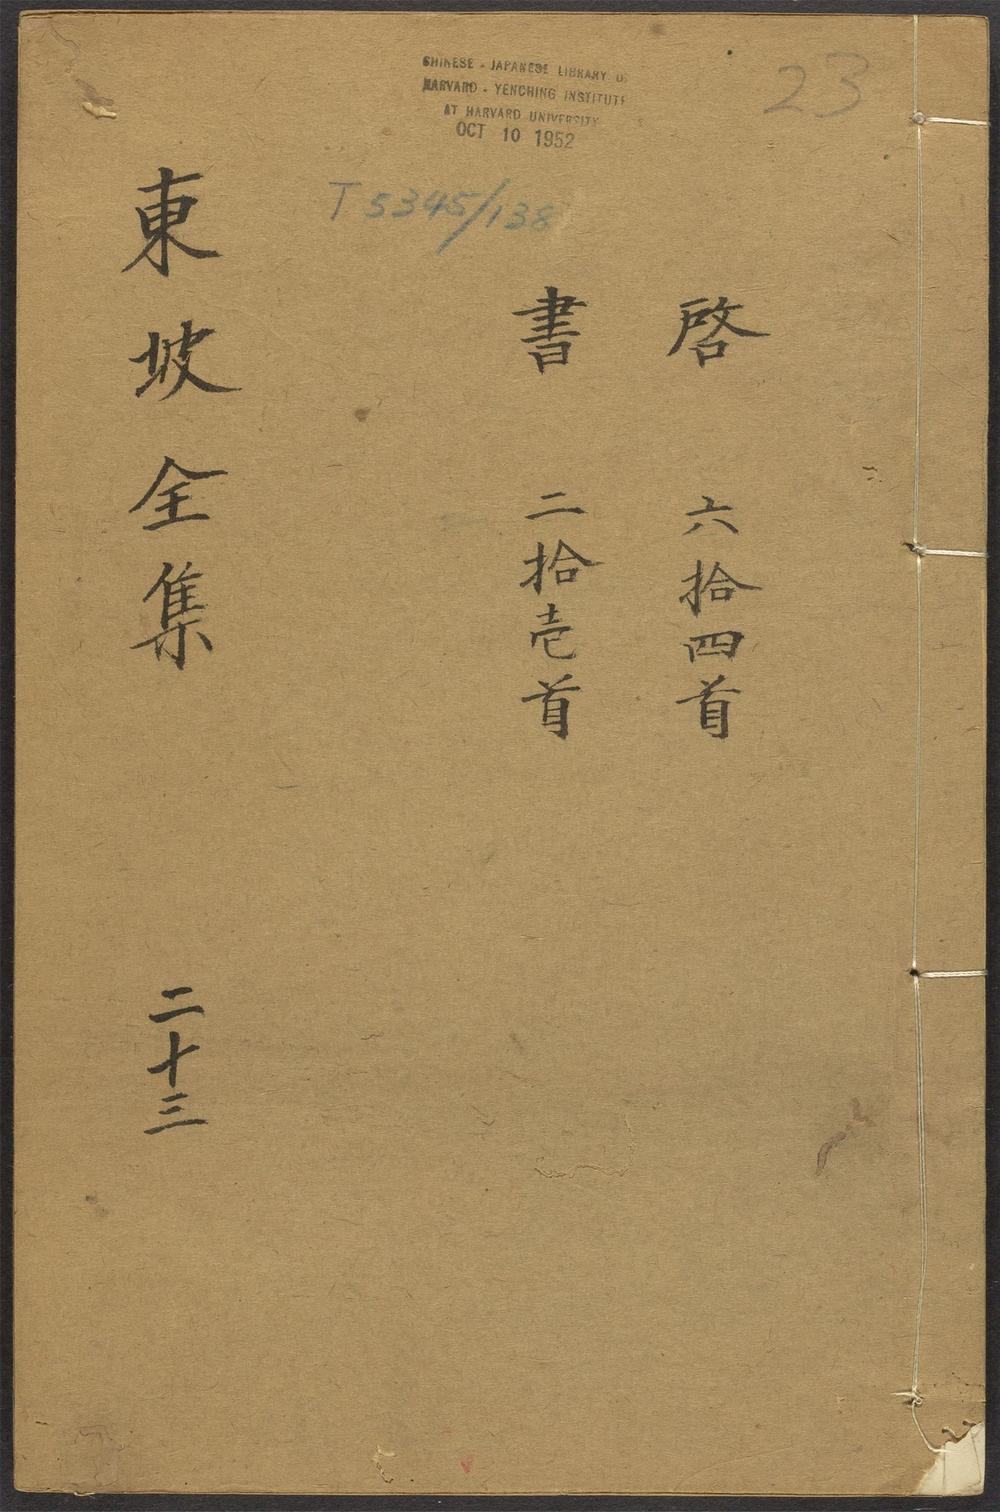 啓　六拾四首
書　二拾壱首
東坡全集　二十三
CHINESE - JAPANESE LIBRARY OF
HARVARD - YENCHING INSTITUTE
AT HARVARD UNIVERSITY
OCT 10 1952
T 5345/138
23